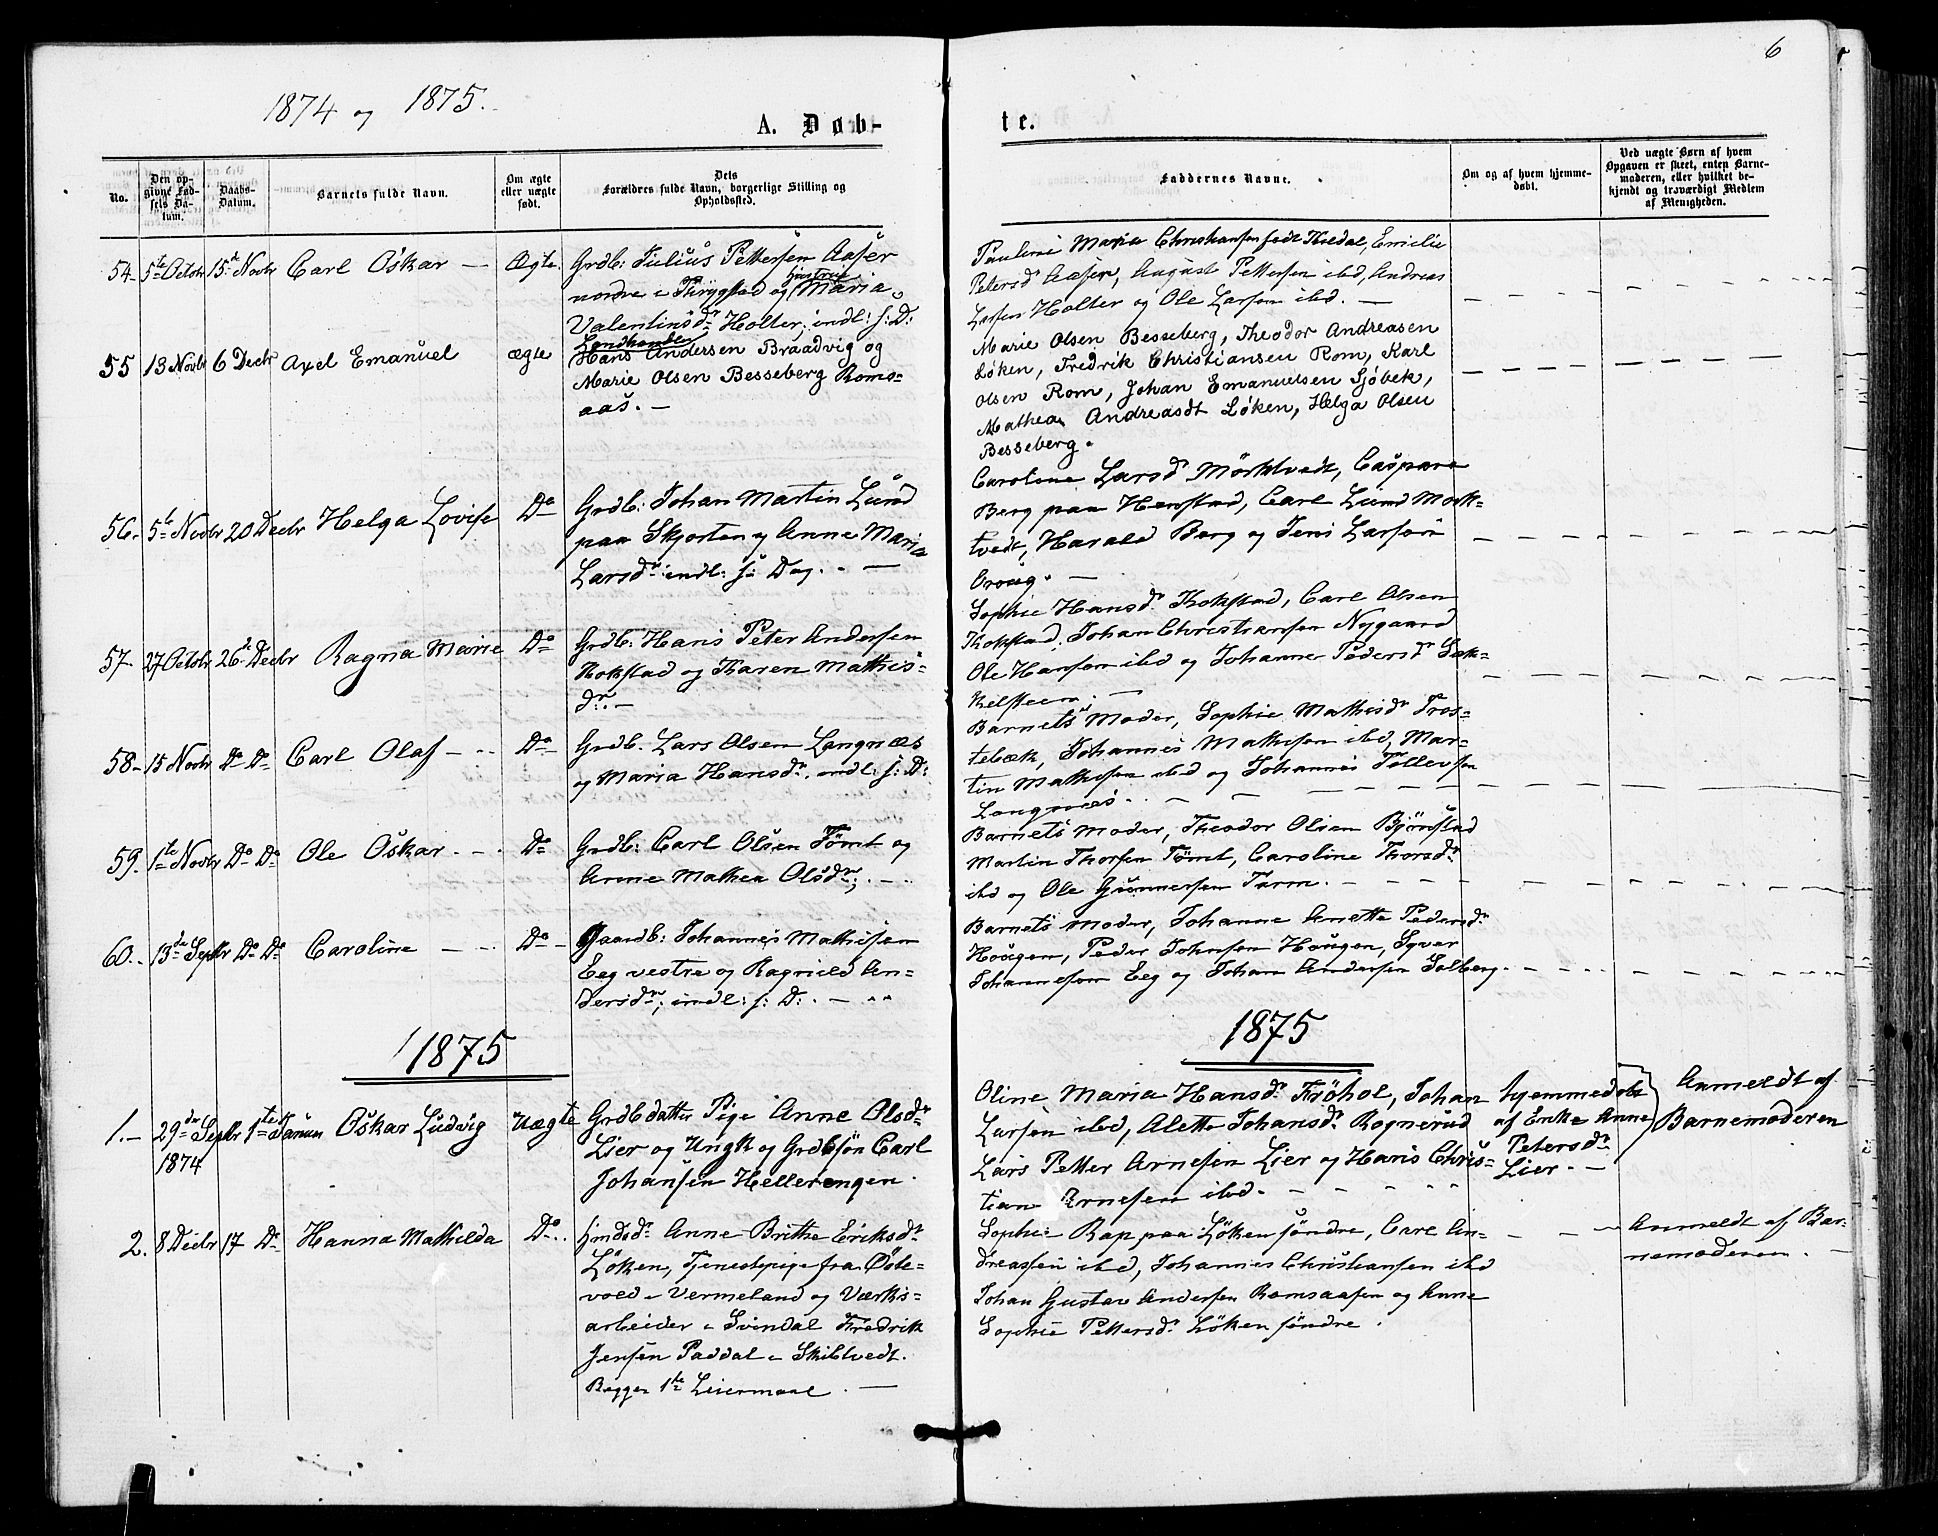 6
1874 og 1875.
A. Døb-
te.
No.
Den op-
givne Fød-
sels Da-
tum.
Daabs-
Datum.
Barnets fulde Navn.
Om ægte
eller uægte
født.
Dets
Forældres fulde Navn, borgerlige Stilling og
Opholdssted.
Faddernes Navne.
Om og af hvem hjemme-
døbt.
Ved uægte Børn af hvem
Opgaven er skeet, enten Barne-
moderen, eller hvilket be-
kjendt og troværdigt Medlem
af Menigheden.
54 5te Octobr 15de Novbr Carl Oskar — Ægte.
Grdb: Julius Pettersen Aaser
nordre i Thrygstad og Hustrue Maria
Valentinsdr Holter; indl: s: D:
Paulini Maria Christiansen født Thoedal, Emilie
Petersd Aaser, August Pettersen ibd, Andreas
Larsen Holter og Ole Larsen ibd. —
55 13 Novbr 6 Decbr Axel Emanuel ægte
Landhandler
Hans Andersen Braadvig og
Marie Olsen Besseberg Roms-
aas. —
Marie Olsen Besseberg, Theodor Andreasen
Løken, Fredrik Christiansen Rom, Karl
Olsen Rom, Johan Emanuelsen Sjöbek,
Mathea Andreasdt Løken, Helga Olsen
Besseberg.
56. 5te Novbr 20 Decbr Helga Lovise Do
Grdb: Johan Martin Lund
paa Skjorten og Anne Maria
Larsdr indl: s: Dag. —
Caroline Larsd Mörktvedt, Caspara
Berg paa Henstad, Carl Lund Mørk-
tvedt, Harald Berg og Jens Larsen
Oroug. —
57 27 Octobr 26de Decbr Ragna Marie Do
Grdb: Hans Peter Andersen
Kokstad og Karen Mathis-
dr. —
Sophie Hansdr Kokstad, Carl Olsen
Kokstad, Johan Christiansen Nygaard
Ole Hansen ibd og Johanne Pedersdr Sæk-
kelsteen. —
58 15 Novbr Do Do Carl Olaf — Do
Grdb. Lars Olsen Langnæs
og Maria Hansdr. indl: s: D:
Barnets Moder, Sophie Mathisdr Fros-
tebæk, Johannes Mathisen ibd, Mar-
tin Mathisen ibd og Johannes Tollevsen
Langnæs.
59. 1ste Novbr Do Do Ole Oskar. — Do
Grdb: Carl Olsen Tömt og
Anne Mathea Olsdr;
Barnets Moder, Theodor Olsen Bjönstad
Martin Thorsen Tömt, Caroline Thorsdr
ibd og Ole Gunnersen Tarm.
60. 13de Septbr Do Do Caroline — Do
Gaardb: Johannes Mathisen
Eeg vestre og Ragnild An-
dersdr; indl: s: D:
Barnets Moder, Johanne Anette Pedersdr
Hougen, Peder Johnsen Hougen, Syver
Johannesen Eeg og Johan Andersen Solberg.
1875
1875
1. — 29de Septbr 1874 1ste Januar Oskar Ludvig Uægte
Grdbdatter Pige Anne Olsdr
Lier og Ungk og Grdbsön Carl
Johansen Hellerengen.
Oline Maria Hansdr Fröhol, Johan
Larsen ibd, Alette Johansdr Rognerud
Lars Petter Arnesen Lier og Hans Chris-
tian Arnesen ibd.
hjemmedöbt
af Enke Anne
Petersdr
Lier. —
Anmeldt af
Barnemoderen
2. 8 Decbr 17 Do Hanna Mathilda Do
Hmdsdr Anne Brithe Eriksdt
Löken, Tjenestepige fra Östе-
vold i Vermeland og Værks-
arbeider i Svindal Fredrik
Jensen Paddal i Skibtvedt.
Begges 1ste Leiermaal. —
Sophie Rap paa Löken söndre, Carl An-
dreassen ibd, Johannes Christiansen ibd
Johan Gustav Andersen Romsaasen og Anne
Sophie Pettersdr Löken söndre.
Anmeldt af Bar-
nemoderen. —